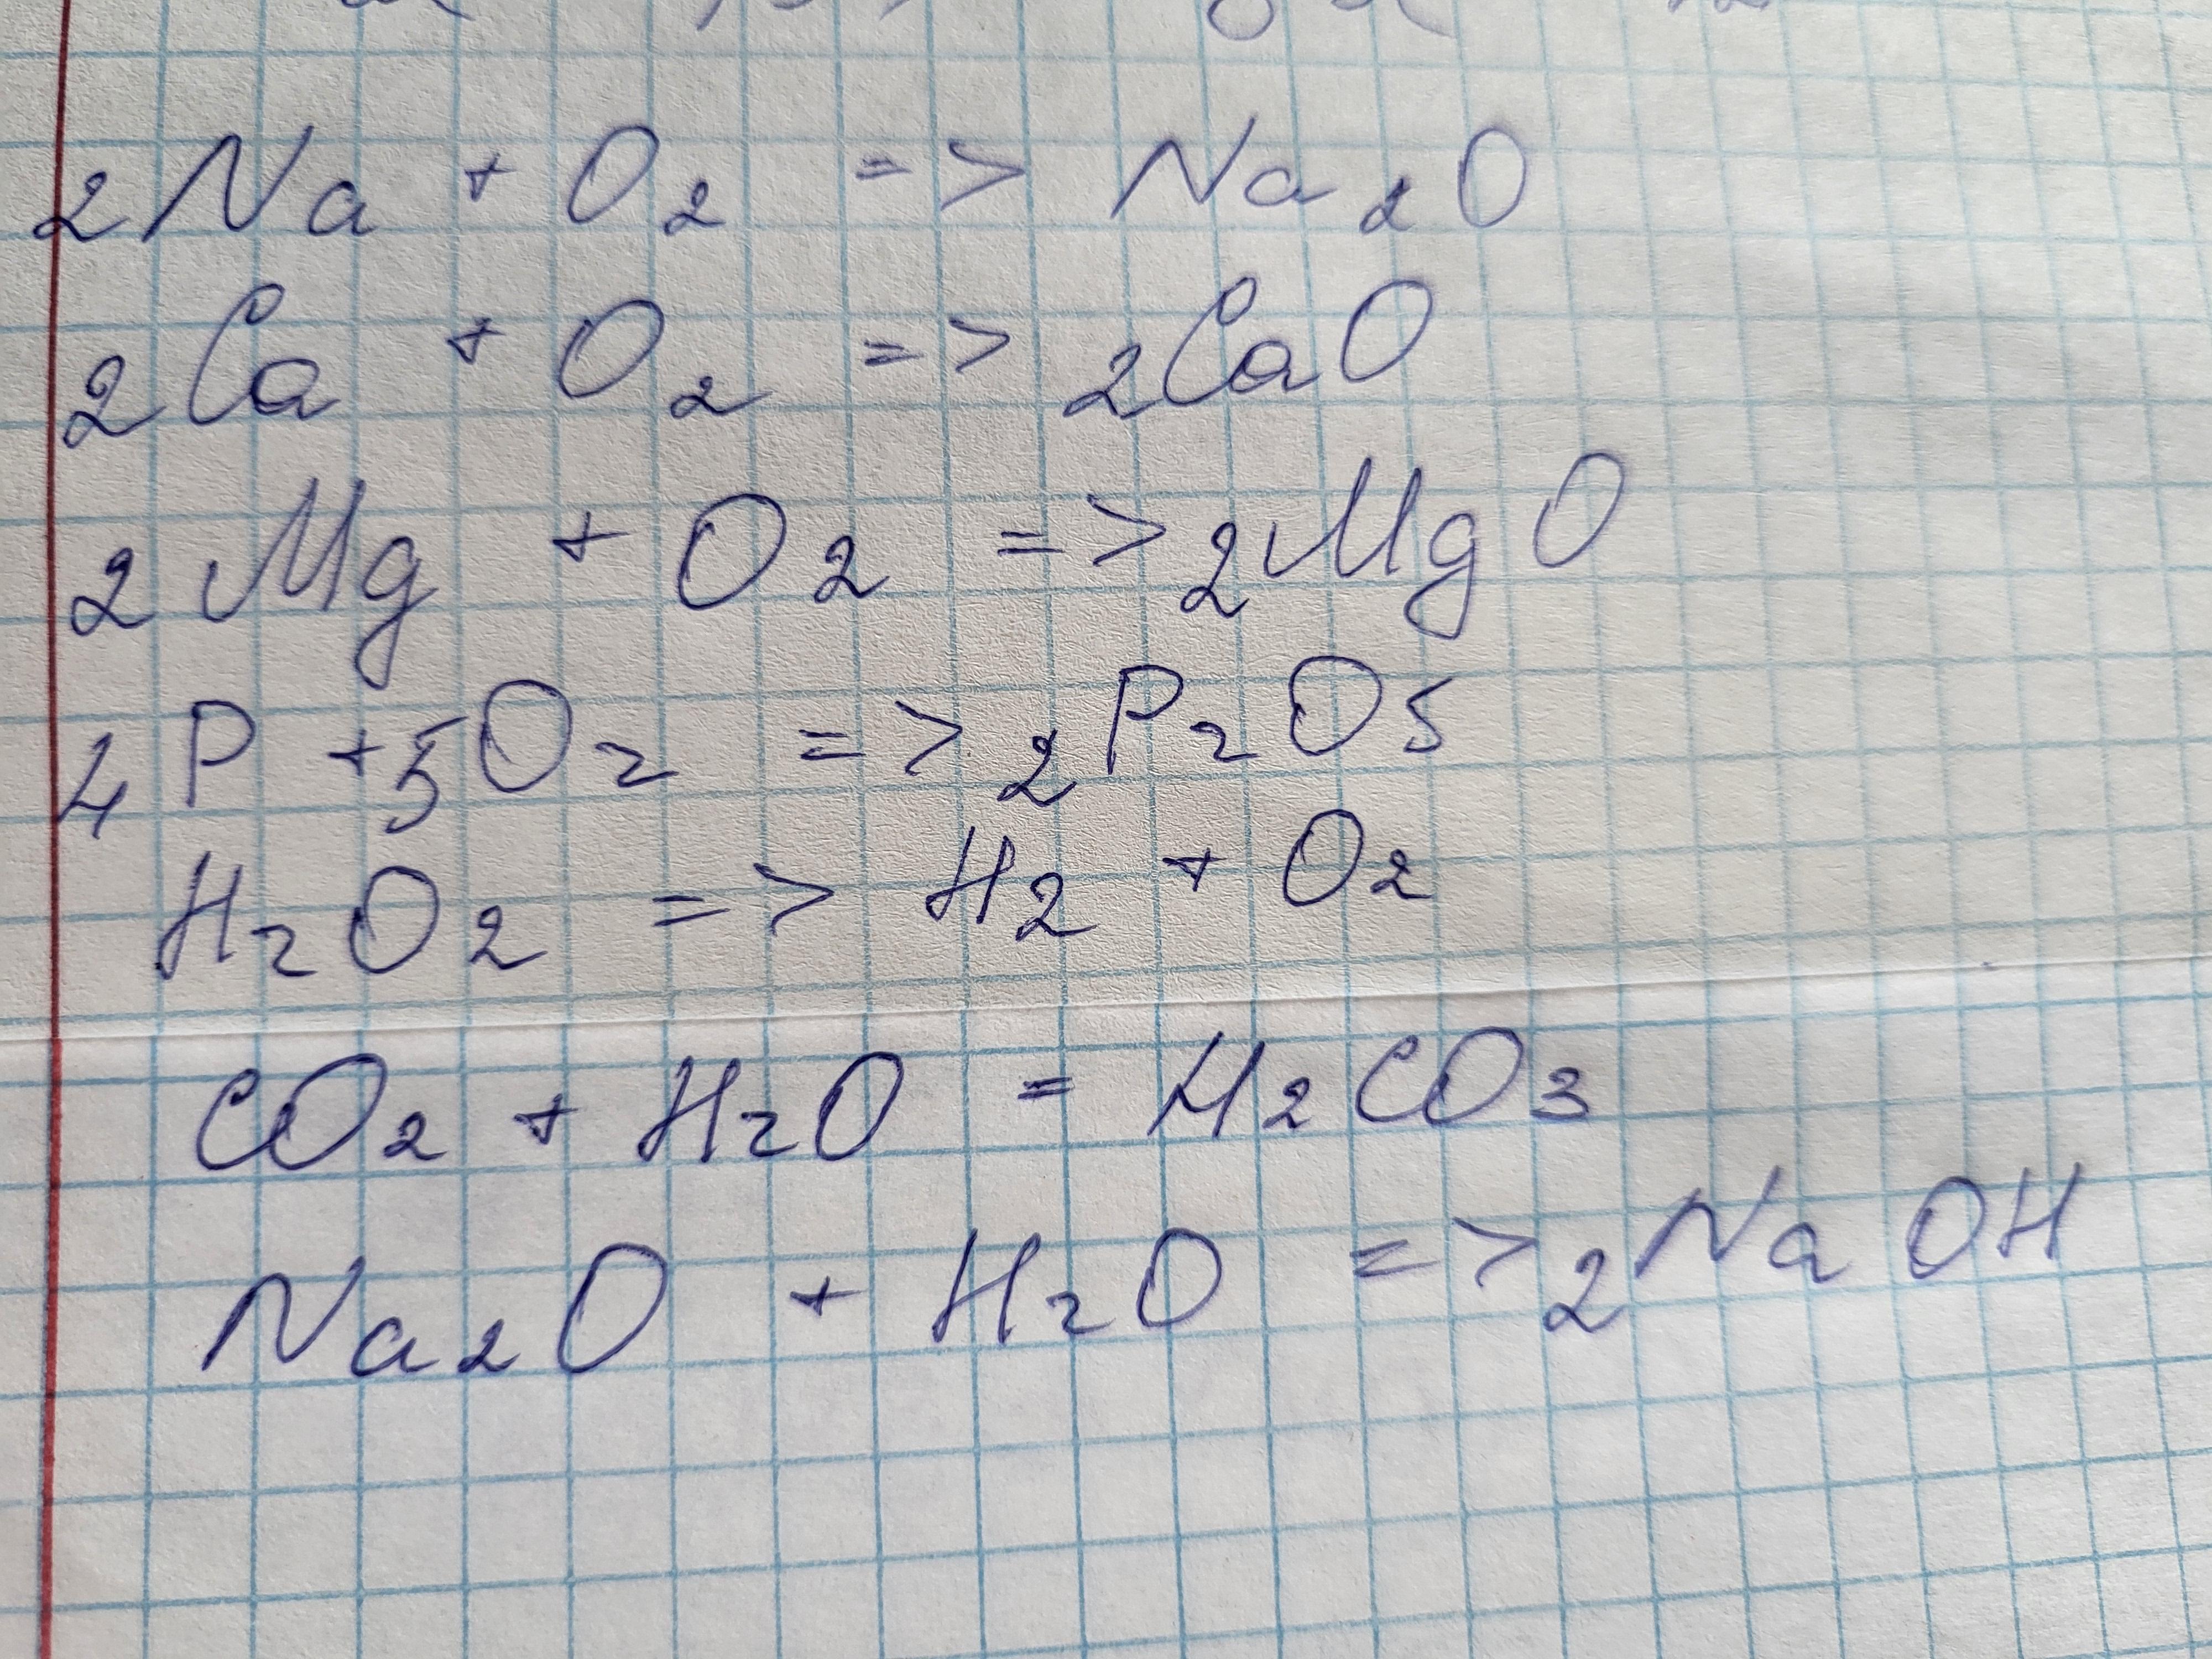 2Na + O2 => Na2O
2Ca + O2 => 2CaO
2Mg + O2 => 2MgO
4P + 5O2 => 2P2O5
H2O2 => H2 + O2
CO2 + H2O = H2CO3
Na2O + H2O => 2NaOH